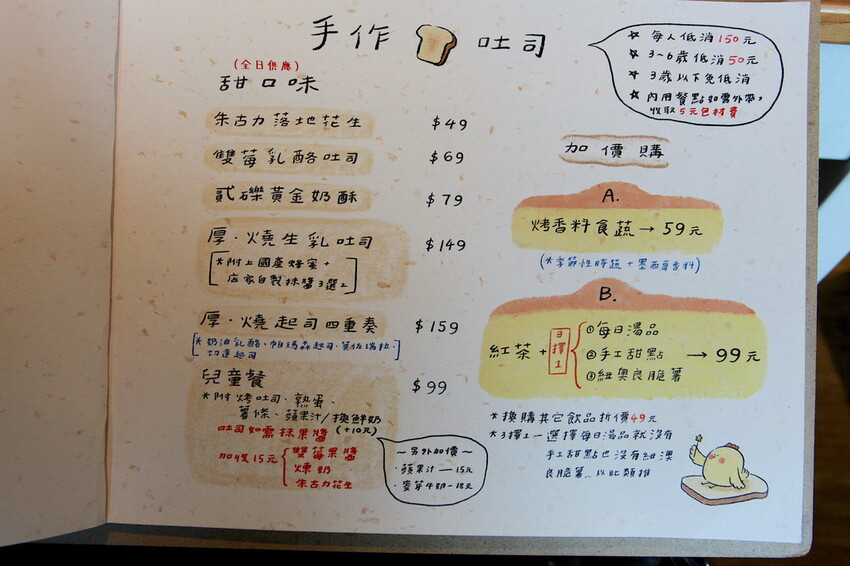 手作 吐司
(全日供應)
甜口味
朱古力落地花生 $49
雙莓乳酪吐司 $69
貳礫黃金奶酥 $79
厚·燒生乳吐司 $149
*附上國產蜂蜜+
店家自製抹醬3選2
厚·燒起司四重奏 $159
*奶油乳酪、帕瑪森起司、莫佐瑞拉
切達起司
兒童餐 $99
*附 烤吐司、熟蛋、
薯條、蘋果汁/換鮮奶
(+10元)
吐司如需抹果醬
加收15元
雙莓果醬
煉奶
朱古力花生
～另外加價～
·蘋果汁—15元
·麥芽牛奶-18元
☆ 每人低消150元
☆ 3~6歲低消50元
☆ 3歲以下免低消
☆ 內用餐點如需外帶,
收取5元包材費
加價購
A.
烤香料食蔬→59元
(*季節性時蔬+墨西哥香料)
B.
紅茶+
3擇1
①每日湯品
②手工甜點
③紐奧良脆薯
→99元
*換購其它飲品折價49元
*3擇1—選擇每日湯品就沒有
手工甜點也沒有紐澳
良脆薯...以此類推